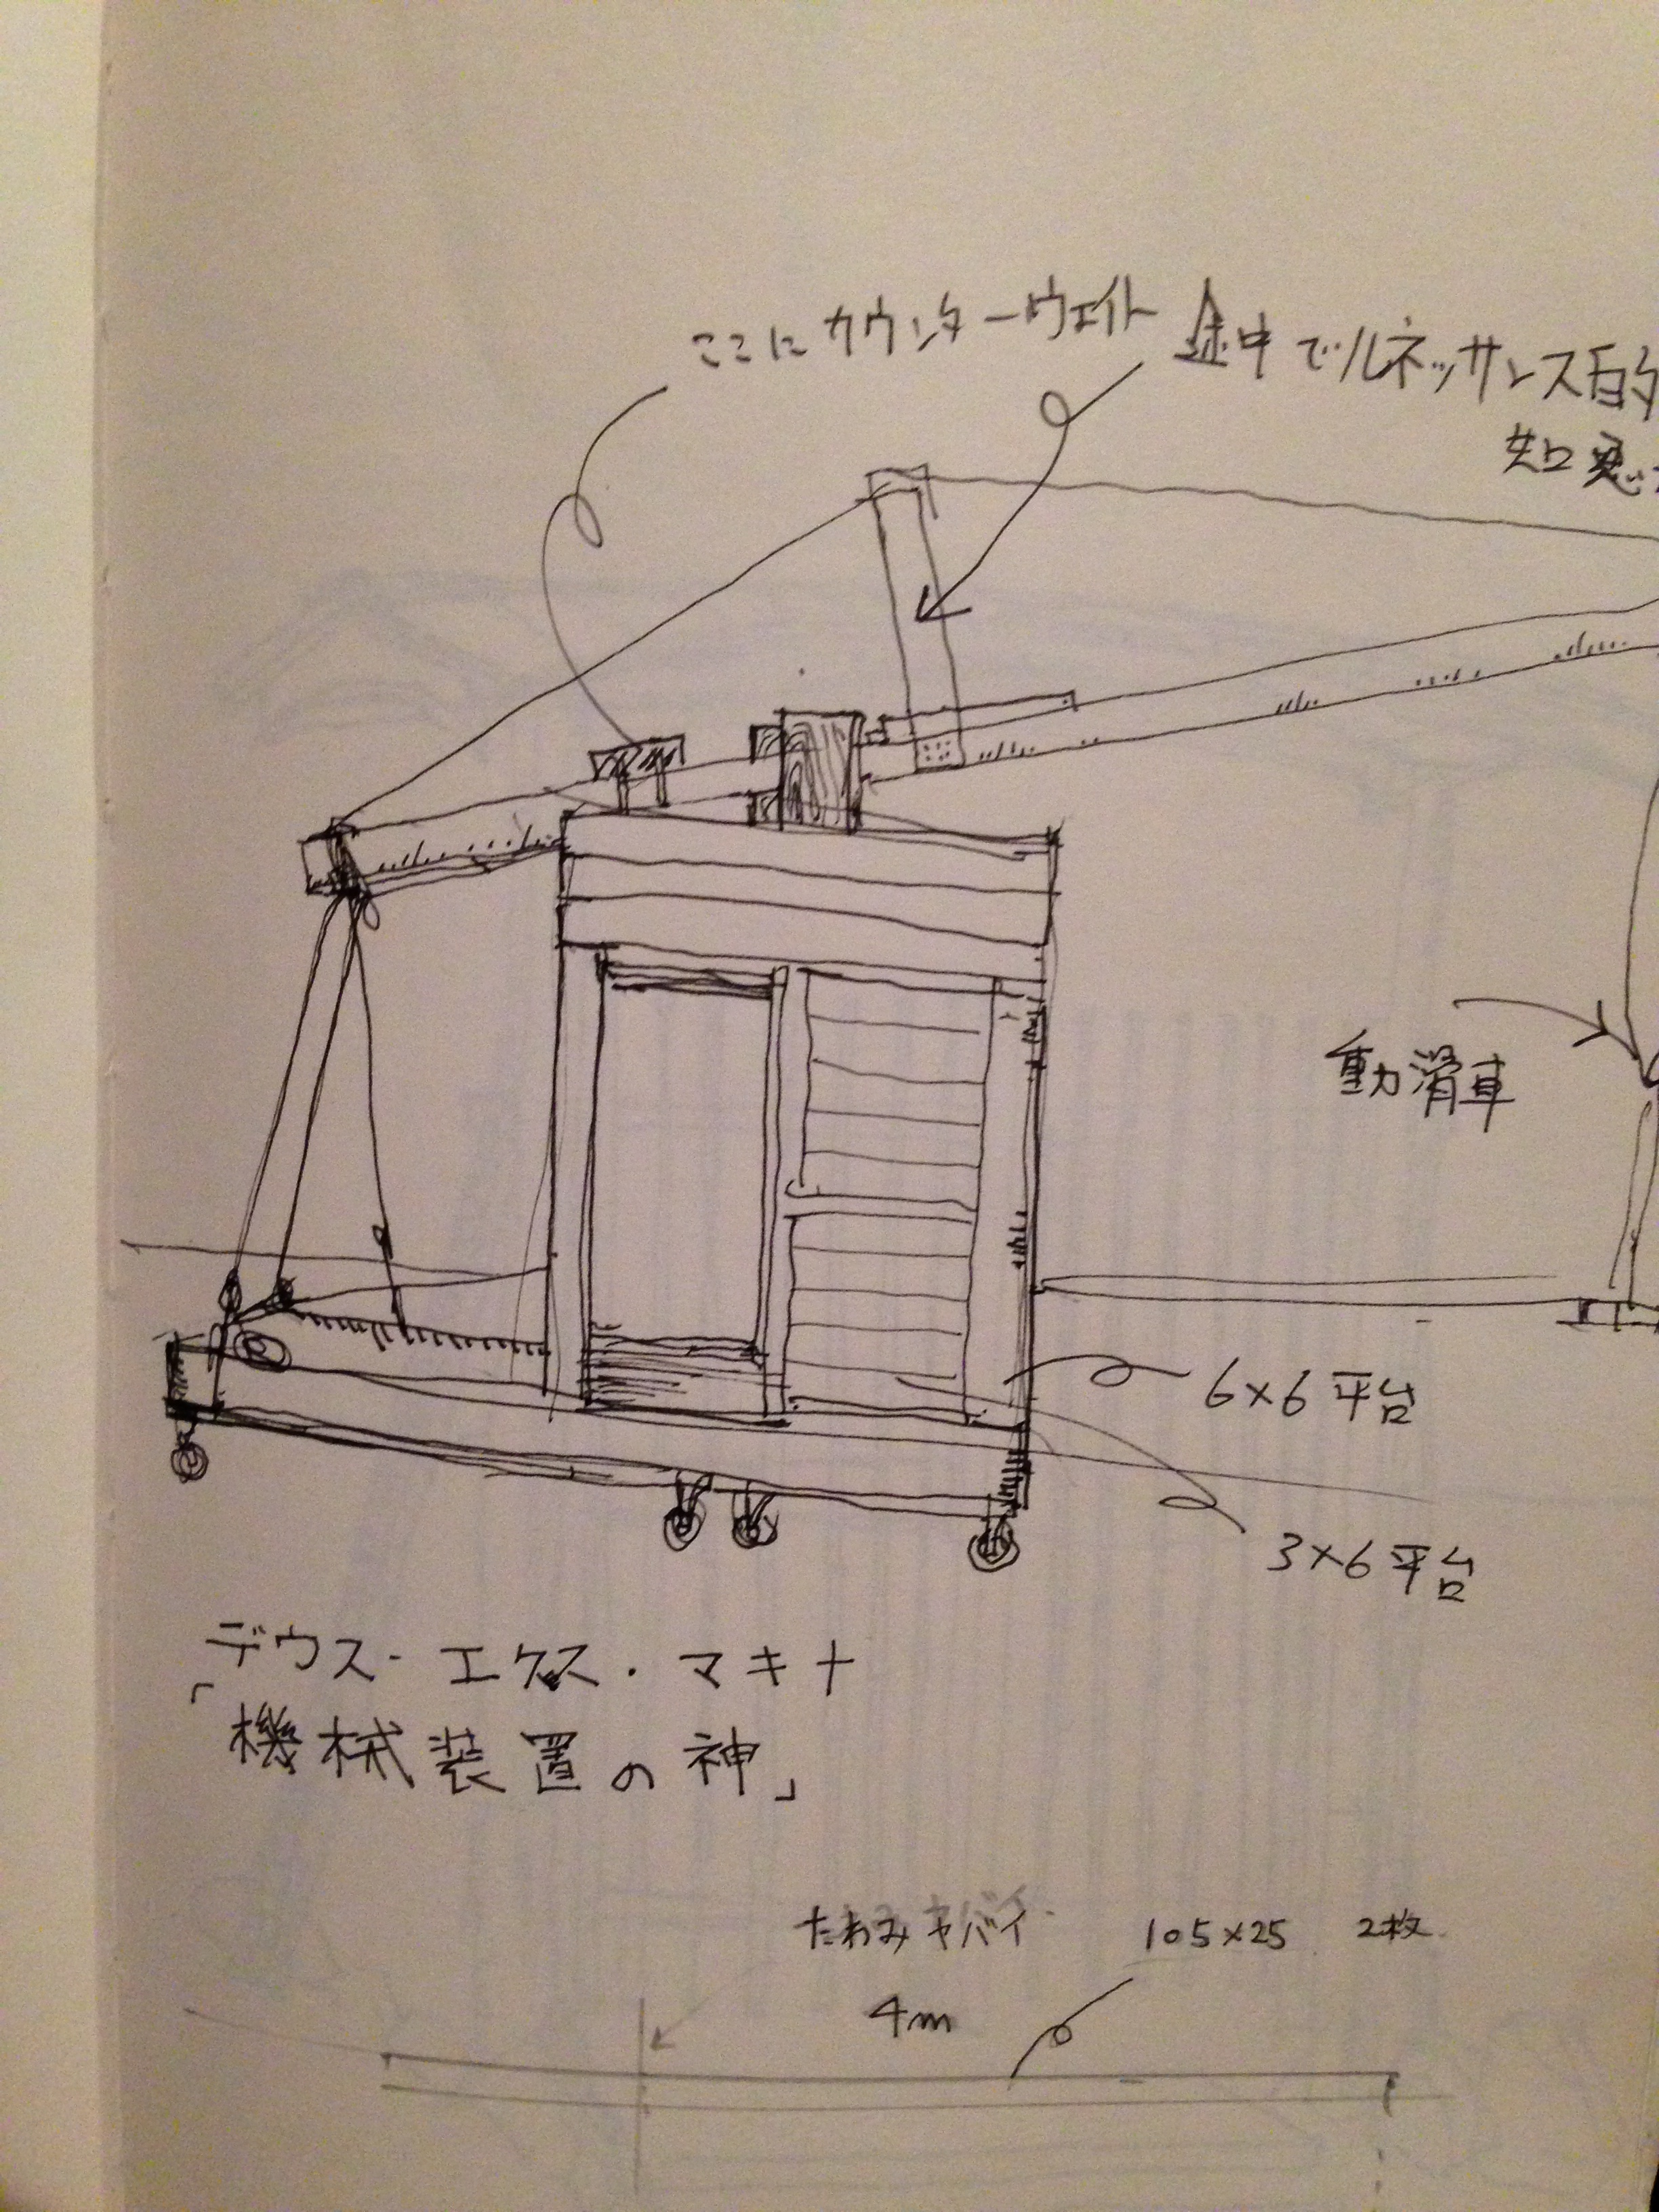 ここにカウンターウェイト
途中でルネッサンス的
知恵
動滑車
6×6 平台
3×6 平台
デウス・エクス・マキナ
「機械装置の神」
たわみヤバイ
105×25 2枚
4m